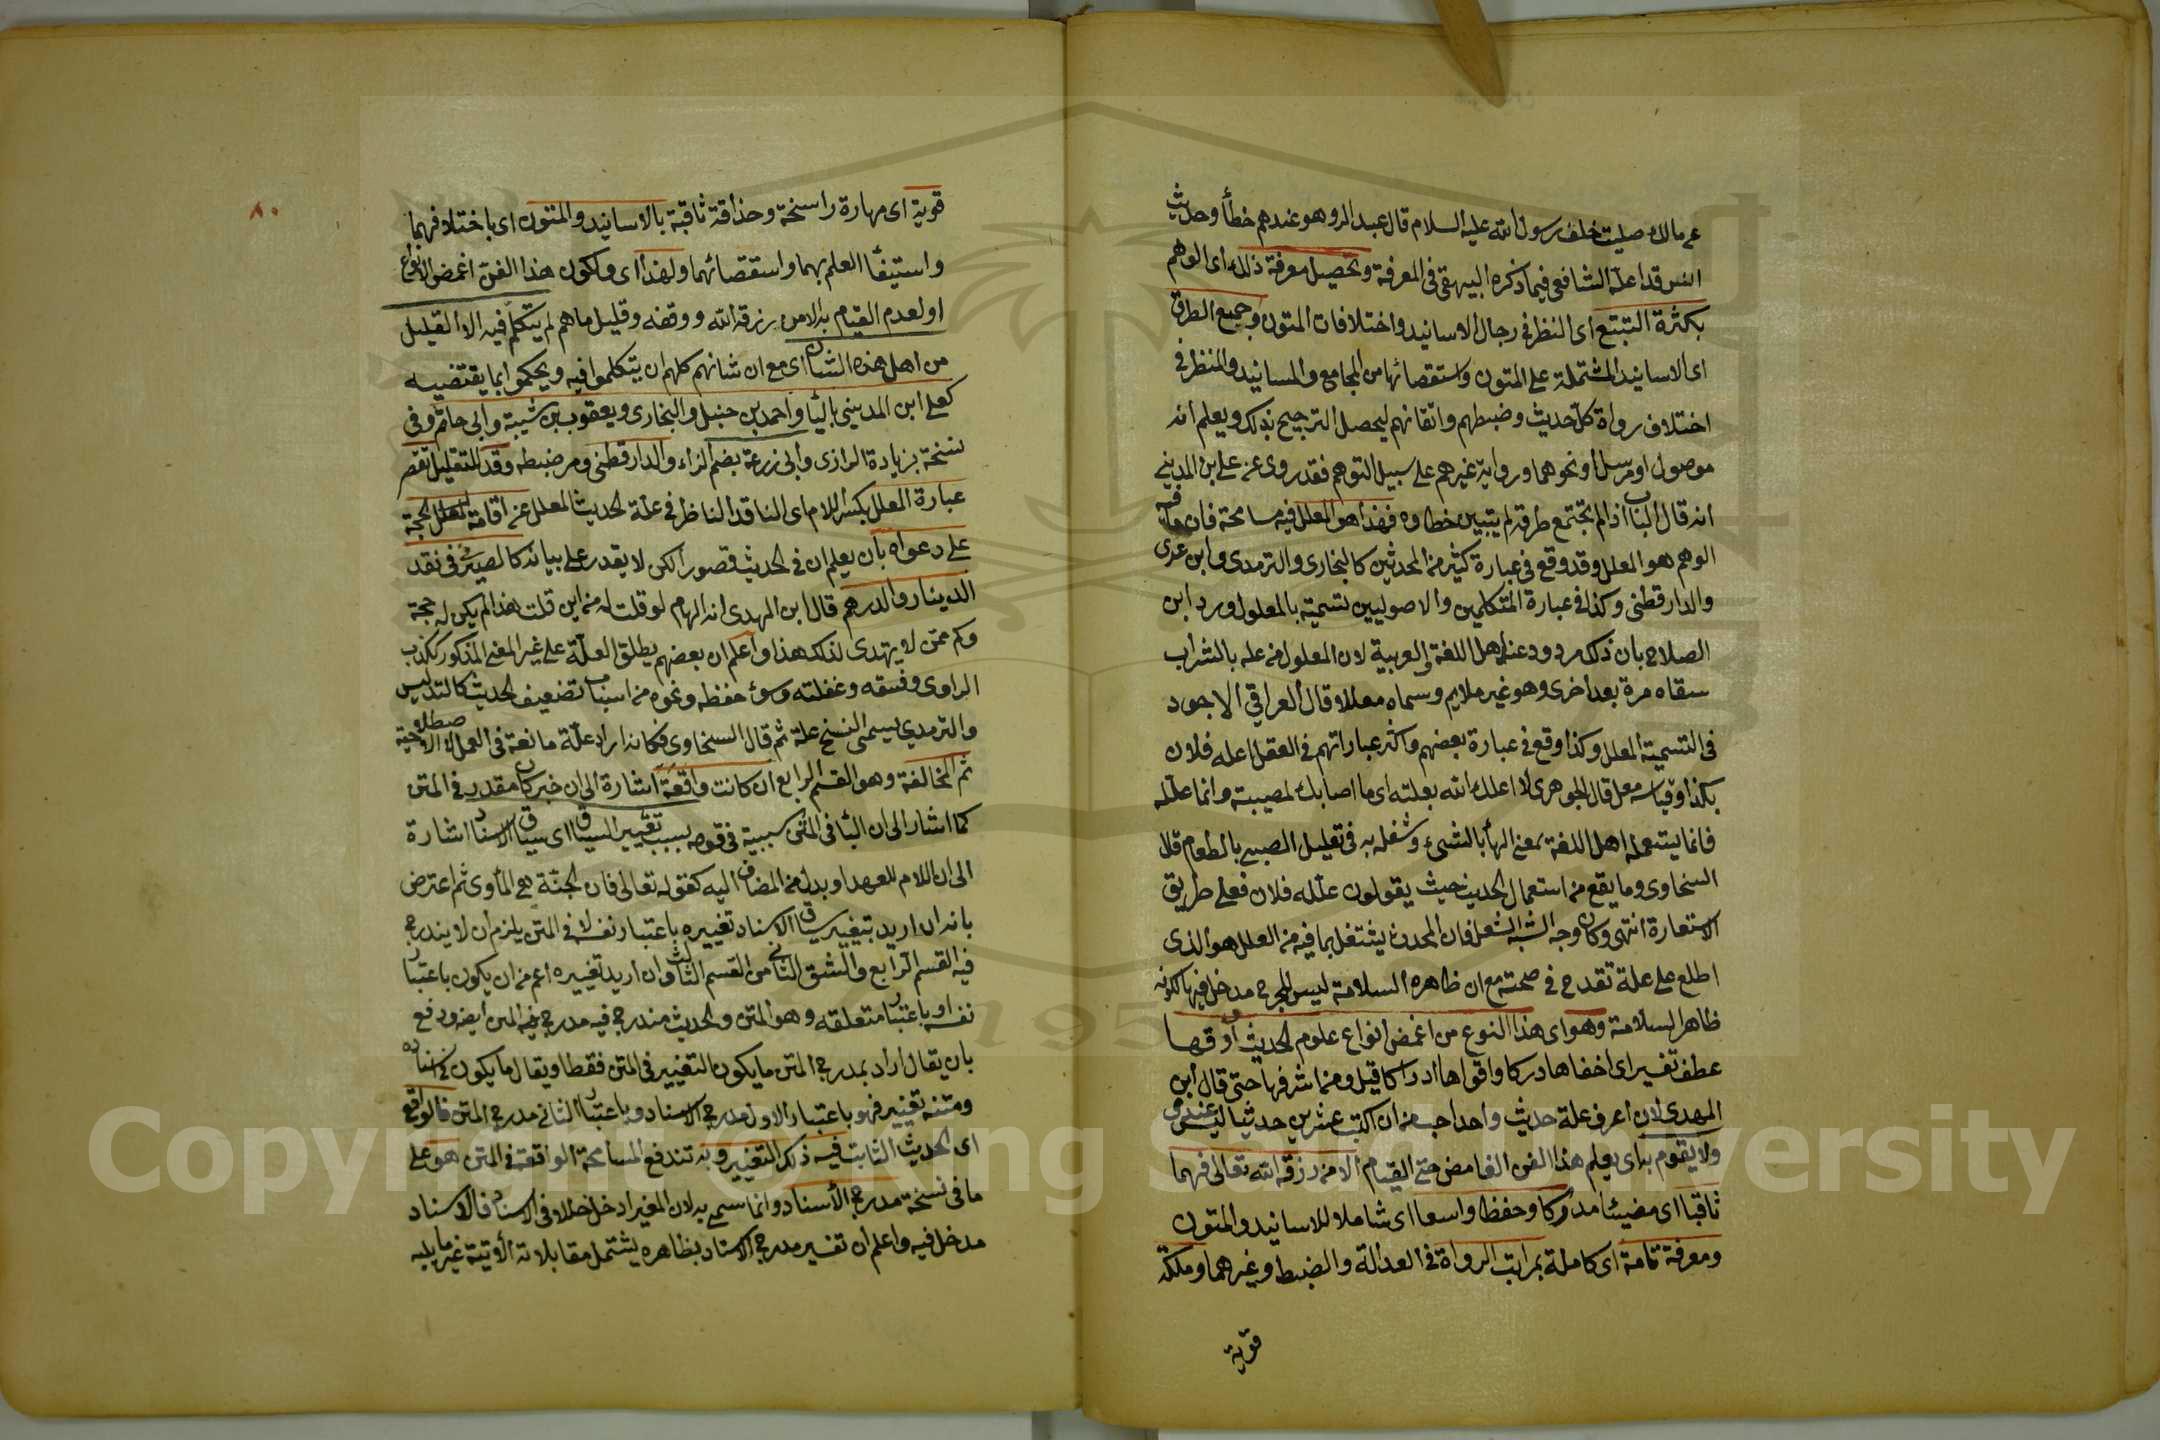 عن مالك صليت خلف رسول الله عليه السلام قال عبد البر وهو عندهم خطأ وحديث
انس قد اعله الشافعي فيما ذكره البيهقي في المعرفة وتحصيل معرفة ذلك اى الوهم
بكثرة التتبع اى النظر في رجال الاسانيد واختلافات المتون وجميع الطرق
اى الاسانيد المشتملة على المتون واستقصائها من المجامع والمسانيد والنظر في
اختلاف رواة كل حديث وضبطهم واتقانهم ليحصل الترجيح بذلك ويعلم انه
موصول او مرسل او نحوهما ورواية غيرهم على سبيل التوهم فقد روى عن على بن المديني
انه قال الباب اذا لم تجتمع طرقه لم يتبين خطاوه فهذا هو المعلل فيه مسامحة فان ما فيه
الوهم هو المعلل وقد وقع في عبارة كثير من المحدثين كالبخارى والترمدى وابن عدى
والدارقطنى وكذا في عبارة المتكلمين والاصوليين تسميته بالمعلول ورد ابن
الصلاح بان ذلك مردود عند اهل اللغة والعربية لان المعلول من عله بالشراب
سقاه مرة بعد اخرى وهو غير ملايم وسماه معللا وقال العراقي الاجود
في التسمية المعلل وكذا وقع في عبارة بعضهم واكثر عباراتهم في الفعل اعله فلان
بكذا وقياسه معل قال الجوهرى لا اعلك الله بعلته اى ما اصابك لمصيبة وانما علله
فانما يستعمله اهل اللغة بمعنى الهأ بالشىء وشغله به في تعليل الصبي بالطعام قال
السخاوى وما يقع من استعمال الحديث حيث يقولون علله فلان فعلى طريق
الاستعارة انتهى وكان وجه الشبه الشغل فان المحدث يشتغل بما فيه من العلل هو الذى
اطلع على علة تقدح في صحته مع ان ظاهره السلامة ليس للجرح مدخل فيها لكونه
ظاهر السلامة وهو اى هذا النوع من اغمض انواع علوم الحديث وادقها
عطف تفسير اى اخفاها دركا واقواها ادراكا قيل ومن اشرفها حتى قال ابن
المهدى لان اعرف علة حديث واحد احب من ان اكتب عشرين حديثا ليس عندى
ولا يقوم به اى يعلم هذا الفن الغامض حق القيام الا من رزقه الله تعالى فهما
ثاقبا اى مضيئا مدركا وحفظا واسعا اى شاملا للاسانيد والمتون
ومعرفة تامة اى كاملة بمراتب الرواة في العدالة والضبط وغيرهما وملكة
قوية
٨٠
قوية اى مهارة راسخة وحذاقة ثاقبة بالاسانيد والمتون اى باختلافهما
واستيفأ العلم بهما واستقصائهما ولهذا اى ولكون هذا الفن اغمض الانواع
او لعدم القيام به الا من رزقه الله ووفقه وقليل ما هم لم يتكلم فيه الا القليل
من اهل هذه الشان اى مع ان شانهم كلهم ان يتكلموا فيه ويحكموا بما يقتضيه
كعلى ابن المديني باليا واحمد بن حنبل والبخارى ويعقوب بن شيبة وابى حاتم وفى
نسخة بزيادة الرازى وابى زرعة بضم الزاء والدارقطنى ومر ضبطه وقد للتقليل تقصر
عبارة المعلل بكسر اللام اى الناقد الناظر في علة الحديث المعلل عن اقامة الحجة
على دعواه بان يعلم ان في الحديث قصورا لكن لا يقدر على بيانه كالصيرفى في نقد
الدينار والدرهم قال ابن المهدى انه الهام لو قلت له من اين قلت هذا لم يكن له حجة
وكم ممن لا يهتدى لذلك هذا واعلم ان بعضهم يطلق العلة على غير المعنى المذكور ككذب
الراوى وفسقه وغفلته وسوء حفظه ونحوه من اسباب تضعيف الحديث كالتدليس
والترمدي يسمى النسخ علة ثم قال السخاوى فكانه اراد علة مانعة في العمل لا الاصطلاحية
ثم المخالفة وهو القسم الرابع ان كانت واقعة اشارة الى ان خبر كان مقدر في المتن
كما اشار الى ان البا في المتن سببية في قوله بسبب تغيير السياق اى سياق الاسناد اشارة
الى ان اللام للعهد او بدل من المضاف اليه كقوله تعالى فان الجنة هي المأوى ثم اعترض
بانه ان اريد بتغيير سياق الاسناد تغييره باعتبار نفسه لا في المتن يلزم ان لا يندرج
فيه القسم الرابع والشق الثاني من القسم الثالث وان اريد تغييره اعم من ان يكون باعتبار
نفسه او باعتبار متعلقه وهو المتن والحديث مندرج فيه مدرج فيه المتن ايضا ودفع
بان يقال اراد بمدرج المتن ما يكون التغيير في المتن فقط او يقال ما يكون في اسناده
ومتنه تغيير فهو باعتبار الاول مدرج الاسناد وباعتبار الثاني مدرج المتن فالواقع
اى الحديث الثابت فيه ذلك التغيير وبه تندفع المسامحة الواقعة في المتن هو على
ما في نسخة مدرج الأسناد وانما سمي به لان المغير ادخل خللا في الاسناد فالاسناد
مدخل فيه واعلم ان تفسير مدرج الاسناد بظاهره يشتمل مقابلاته الأتية غير ما يليه
Copyright © King Saud University